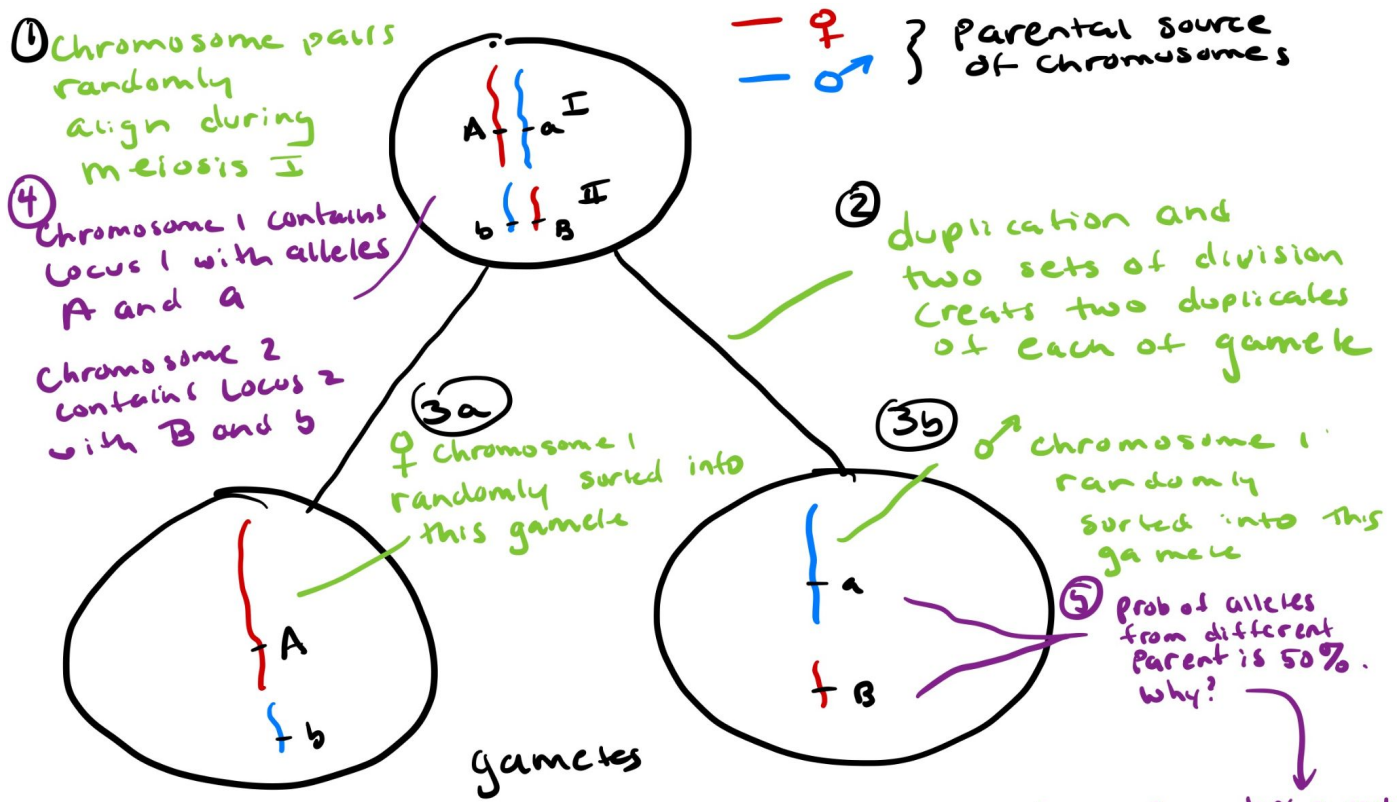 ① Chromosome pairs
randomly
align during
meiosis I
♀
♂
} Parental source
of chromosomes
A a I
b B II
④
Chromosome 1 contains
Locus 1 with alleles
A and a
Chromosome 2
contains Locus 2
with B and b
②
duplication and
two sets of division
creats two duplicates
of each of gamete
3a
♀ chromosome 1
randomly sorted into
this gamete
3b
♂ chromosome 1
randomly
sorted into this
gamete
A
b
a
B
⑤ prob of alleles
from different
parent is 50%.
why?
gametes